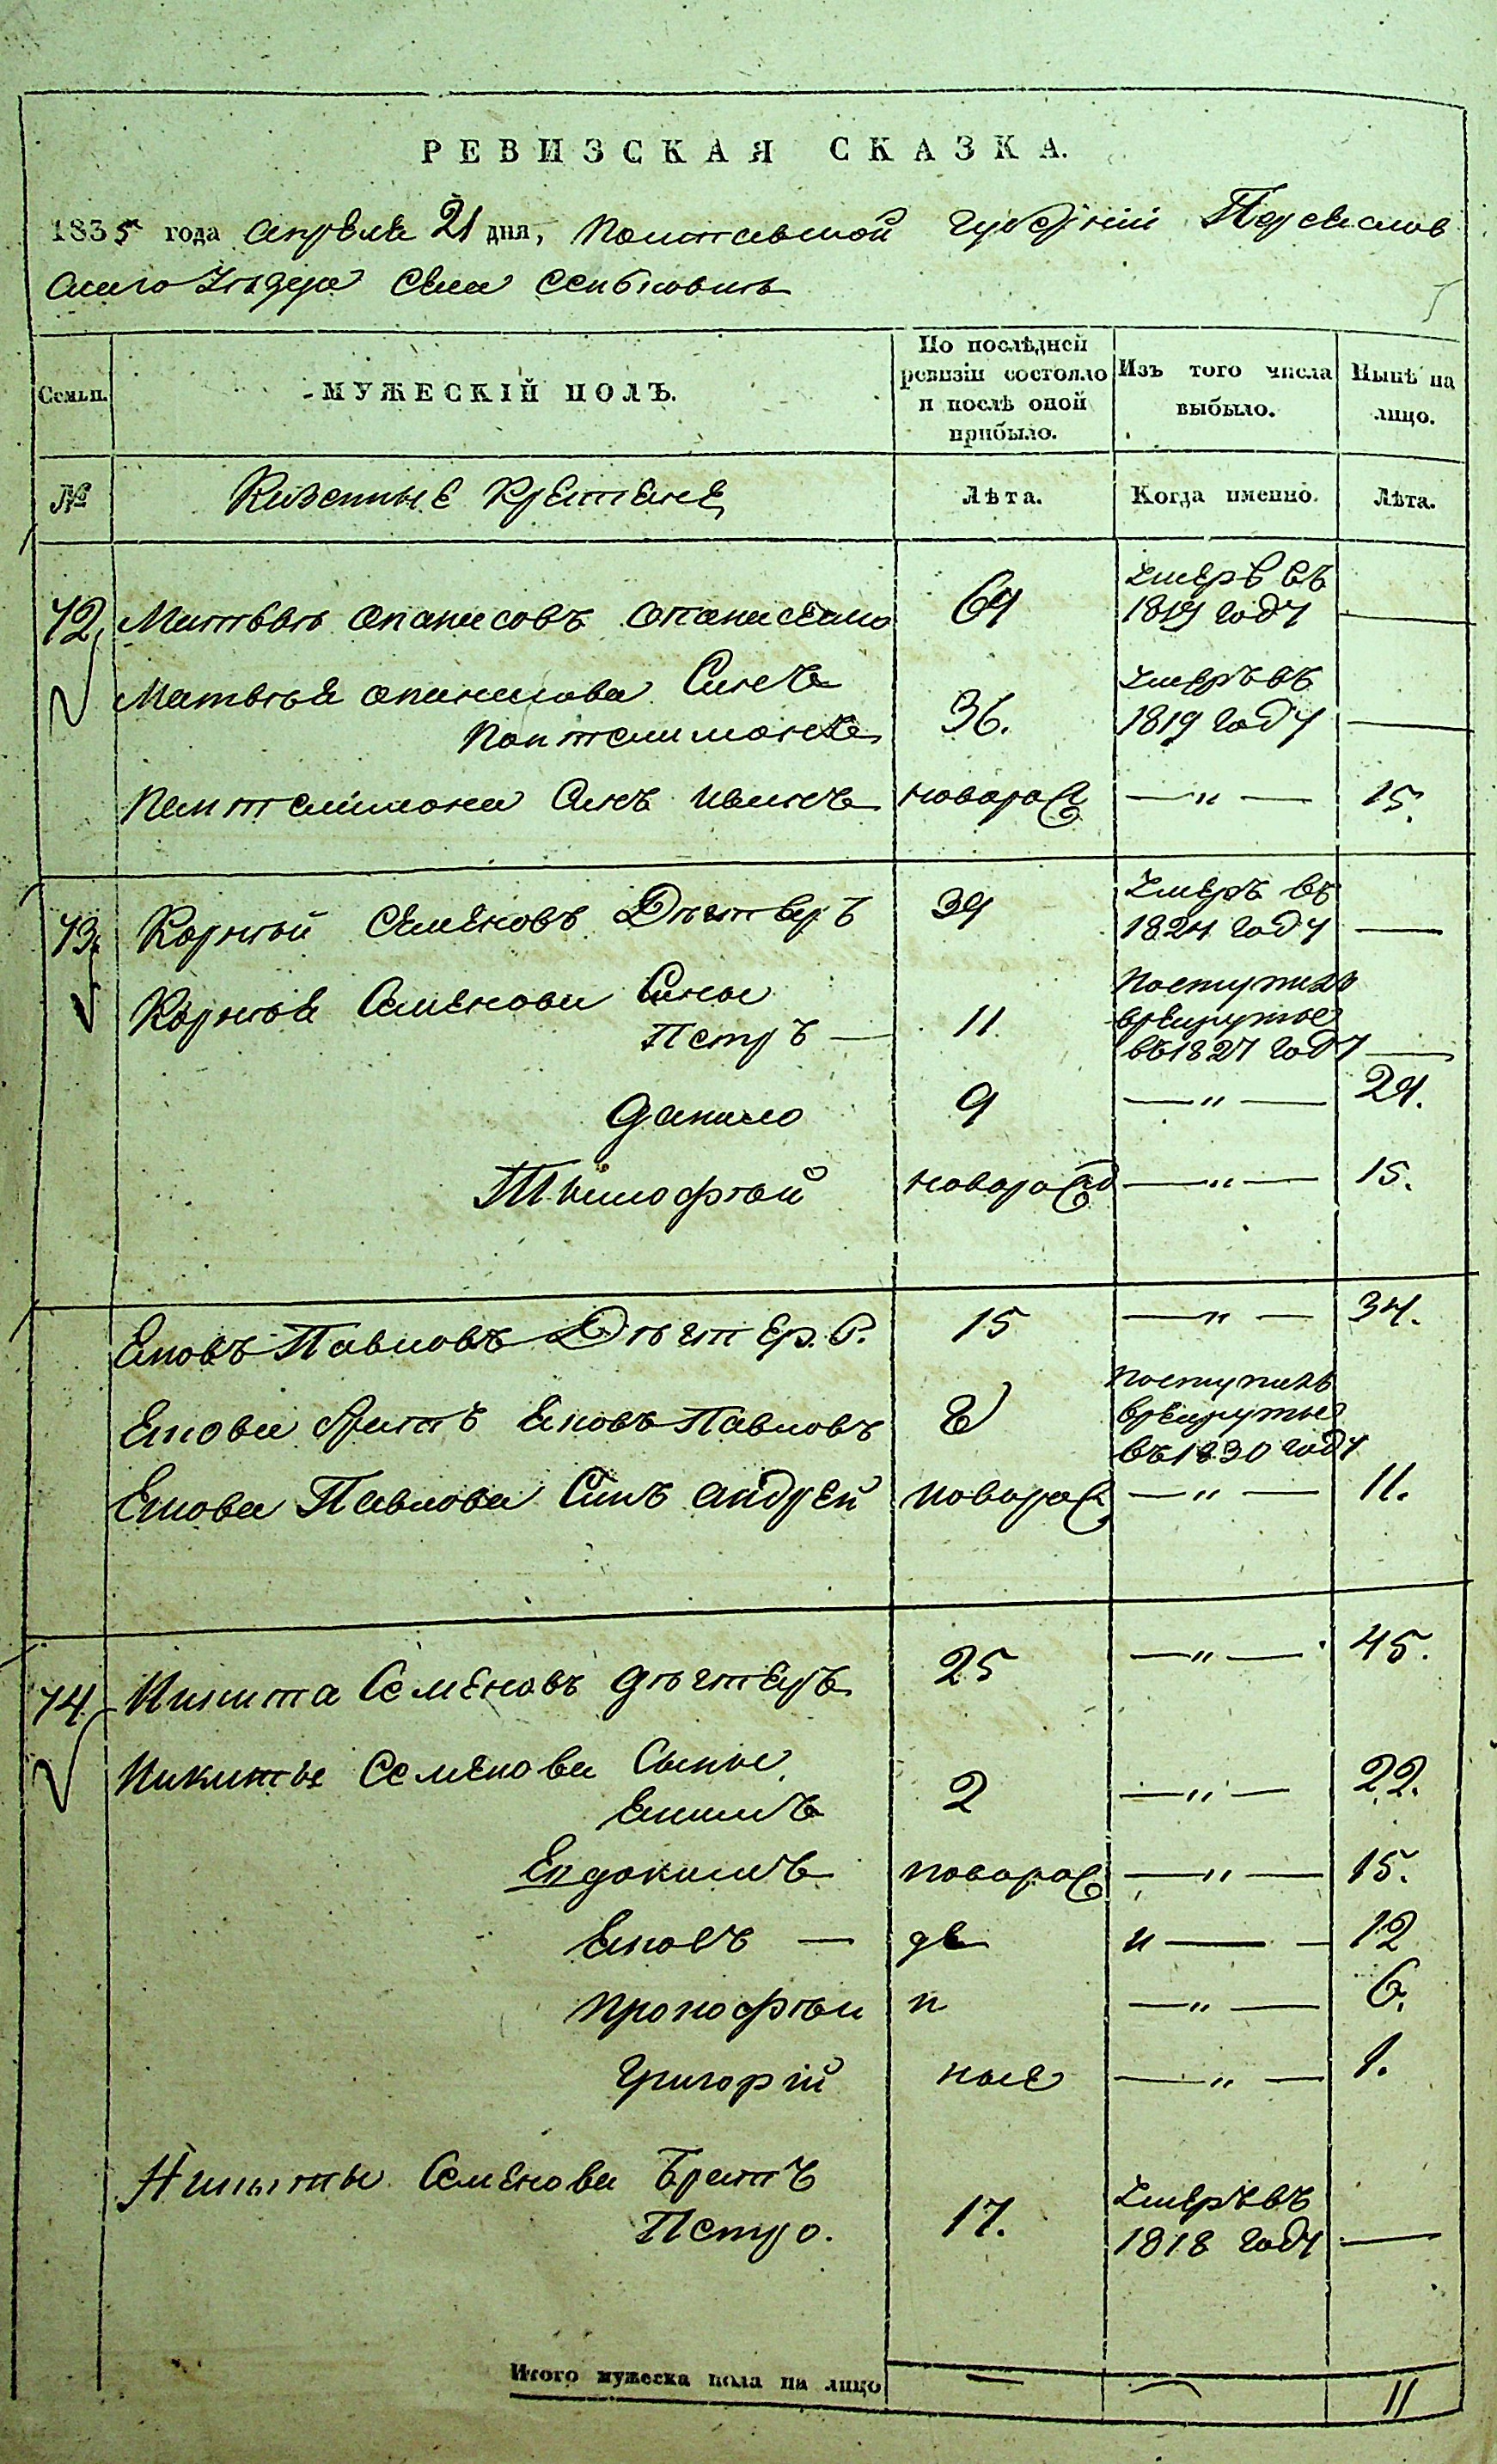 РЕВИЗСКАЯ СКАЗКА.
1835 года Апреля 21 дня, Полтавской Губерніи Переяслов
скаго уезда Села
Семьи. МУЖЕСКІЙ ПОЛЪ. По послѣдней ревизіи состояло и послѣ оной прибыло. Изъ того числа выбыло. Нынѣ на лицо.
№ Казенные Крестяне Лѣта. Когда именно. Лѣта.
72. Матвѣй Апанасовъ 64 Умеръ въ 1819 году —
Матвѣя Апанасова Синъ
Пантелимонъ 36. Умеръ въ 1819 году —
Пантелимона Синъ Иванъ новорож — " — 15.
73. Корнѣй Семеновъ Дѣхтяръ 39 Умеръ въ 1824 году —
Корнѣя Семенова Сины
Петръ — 11 Поступилъ в рекруты въ 1827 году —
Данило 9 — " — 24.
Тимофѣй новорожд — " — 15.
Яковъ Павловъ Дѣхтер. 15 — " — 34.
Якова братъ Яковъ Павловъ Поступилъ в рекруты въ 1830 году
Якова Павлова Синъ Андрей новорож — " — 11.
74. Никита Семеновъ Дѣхтеръ 25 — " — 45.
Никиты Семенова Сыны
Якимъ 2 — " — 22.
Евдокимъ новорож — " — 15.
Яковъ — де и — — 12
Прокофѣй н — " — 6.
Григорій ные — " — 1.
Никиты Семенова Братъ
Петро. 17. Умеръ въ 1818 году —
Итого мужеска пола на лицо — — 11